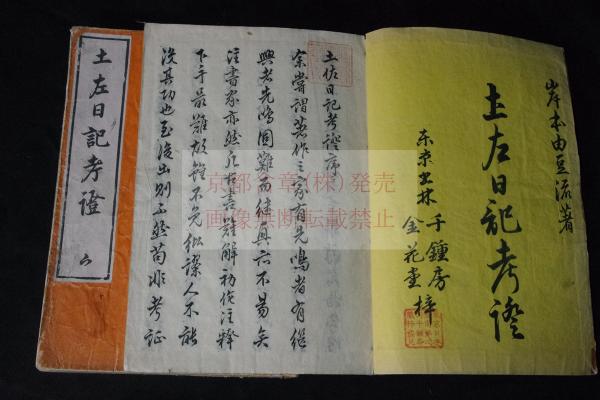 岸本由豆流著
土左日記考證
東京書林 千鍾房
金花堂 梓
土佐日記考證序
余嘗謂著作之家有先鳴者有继
興者先鳴固難而继興亦不易矣
注書家亦然凡古書難解初作注釋
下手最難故雖不免紕謬人不能
没其功也至後出則不然苟非考証
土左日記考證
京都金章(株)発売
画像無断転載禁止